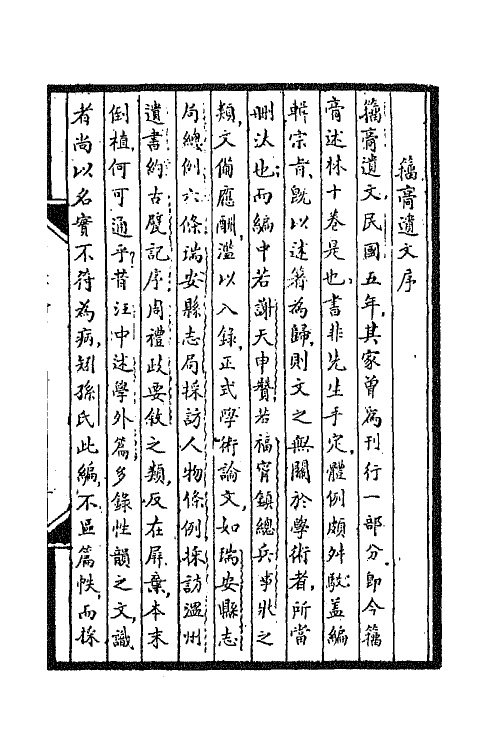 籀膏遺文序
籀膏遺文，民國五年，其家曾爲刊行一部分，即今籀
膏述林十卷是也，書非先生手定，體例頗舛駮；蓋編
輯宗旨，既以述箸為歸，則文之無關於學術者，所當
刪汰也；而編中若謝天申贊，若福甯鎮總兵事狀之
類，文備應酬，濫以入錄，正式學術論文，如瑞安縣志
局總例六條，瑞安縣志局採訪人物條例，採訪溫州
遺書約，古甓記序，周禮政要敘之類，反在屏棄，本末
倒植，何可通乎？昔汪中述學外篇，多錄性韻之文，識
者尚以名實不符為病，矧孫氏此編，不區篇帙，而採